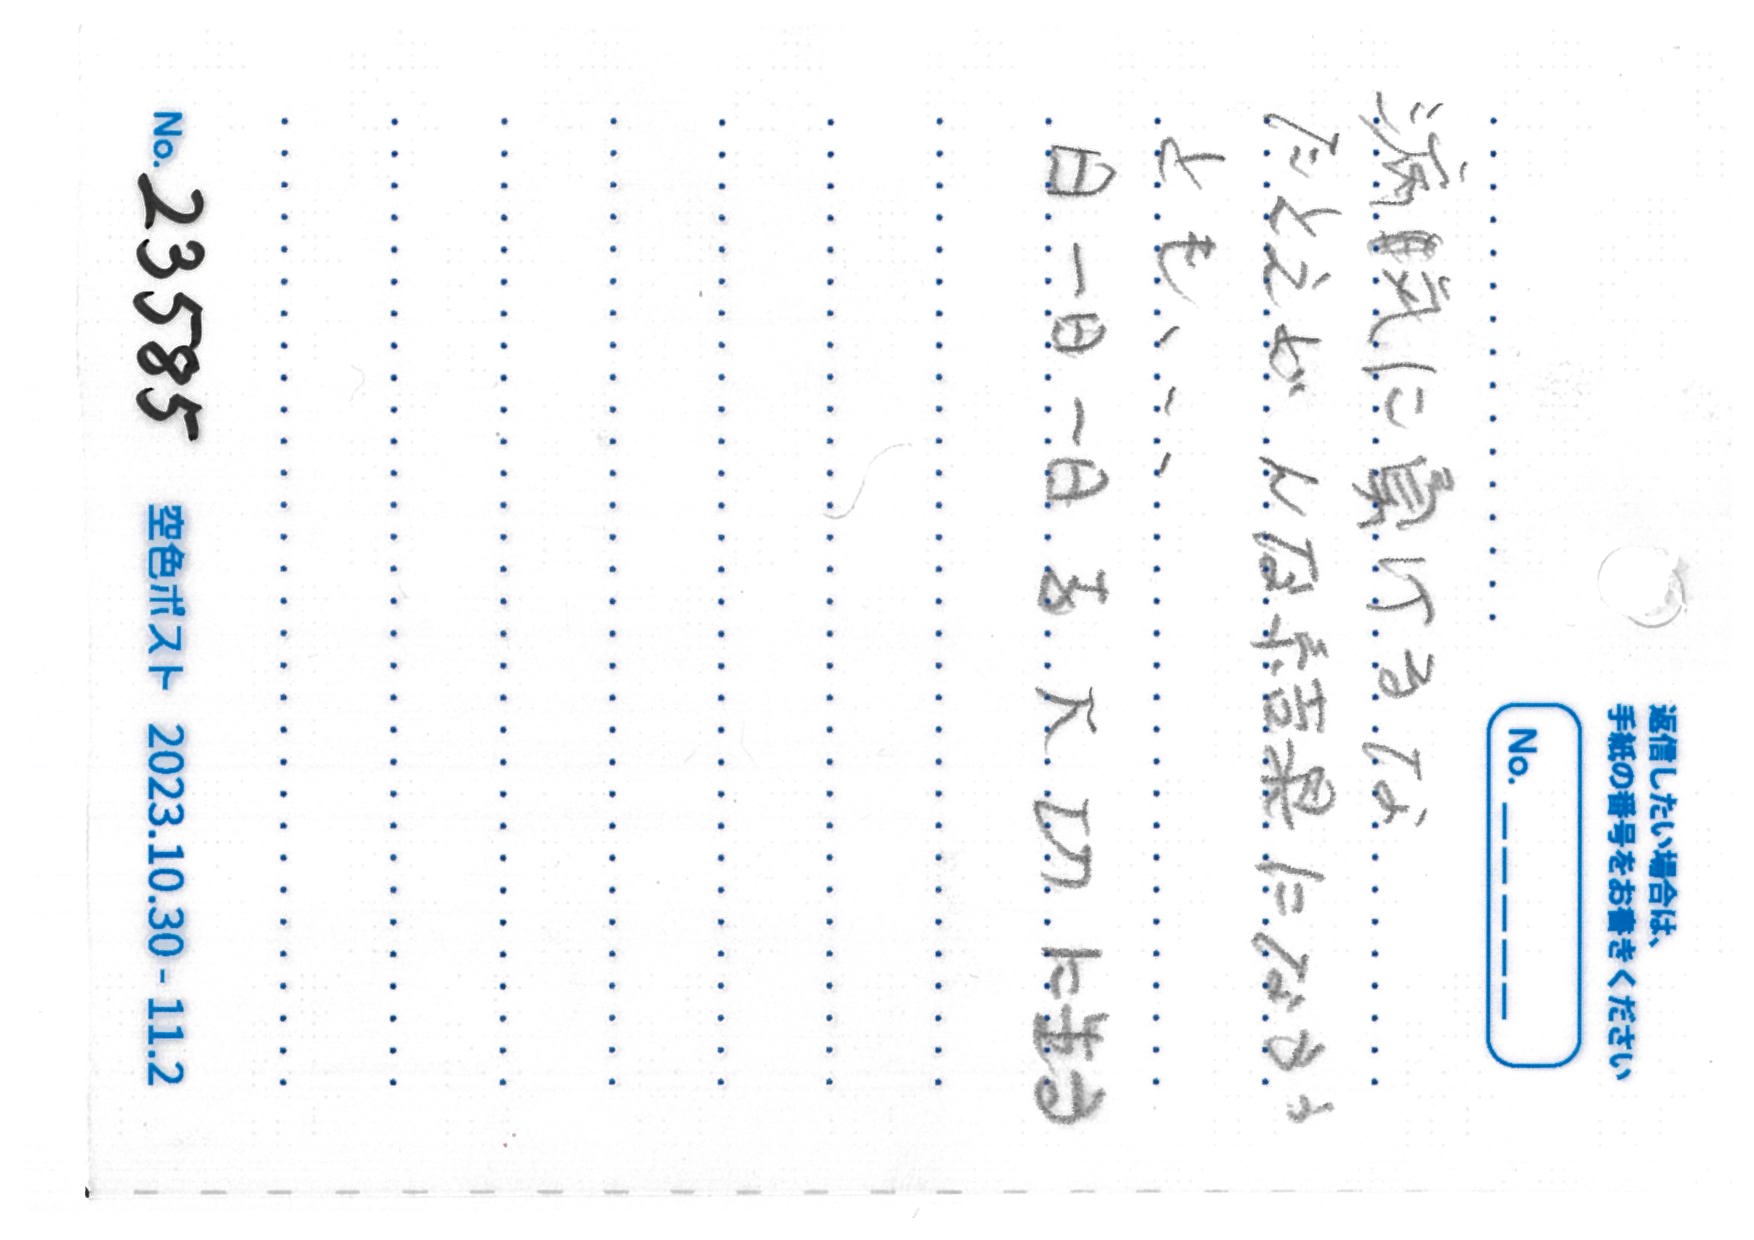 返信したい場合は、
手紙の番号をお書きください
No. _ _ _ _ _
病気に負けるな
たとえがんな結果になろう
とも、、、
日一日一日を大切に生る
No. 23585 空色ポスト 2023.10.30 - 11.2